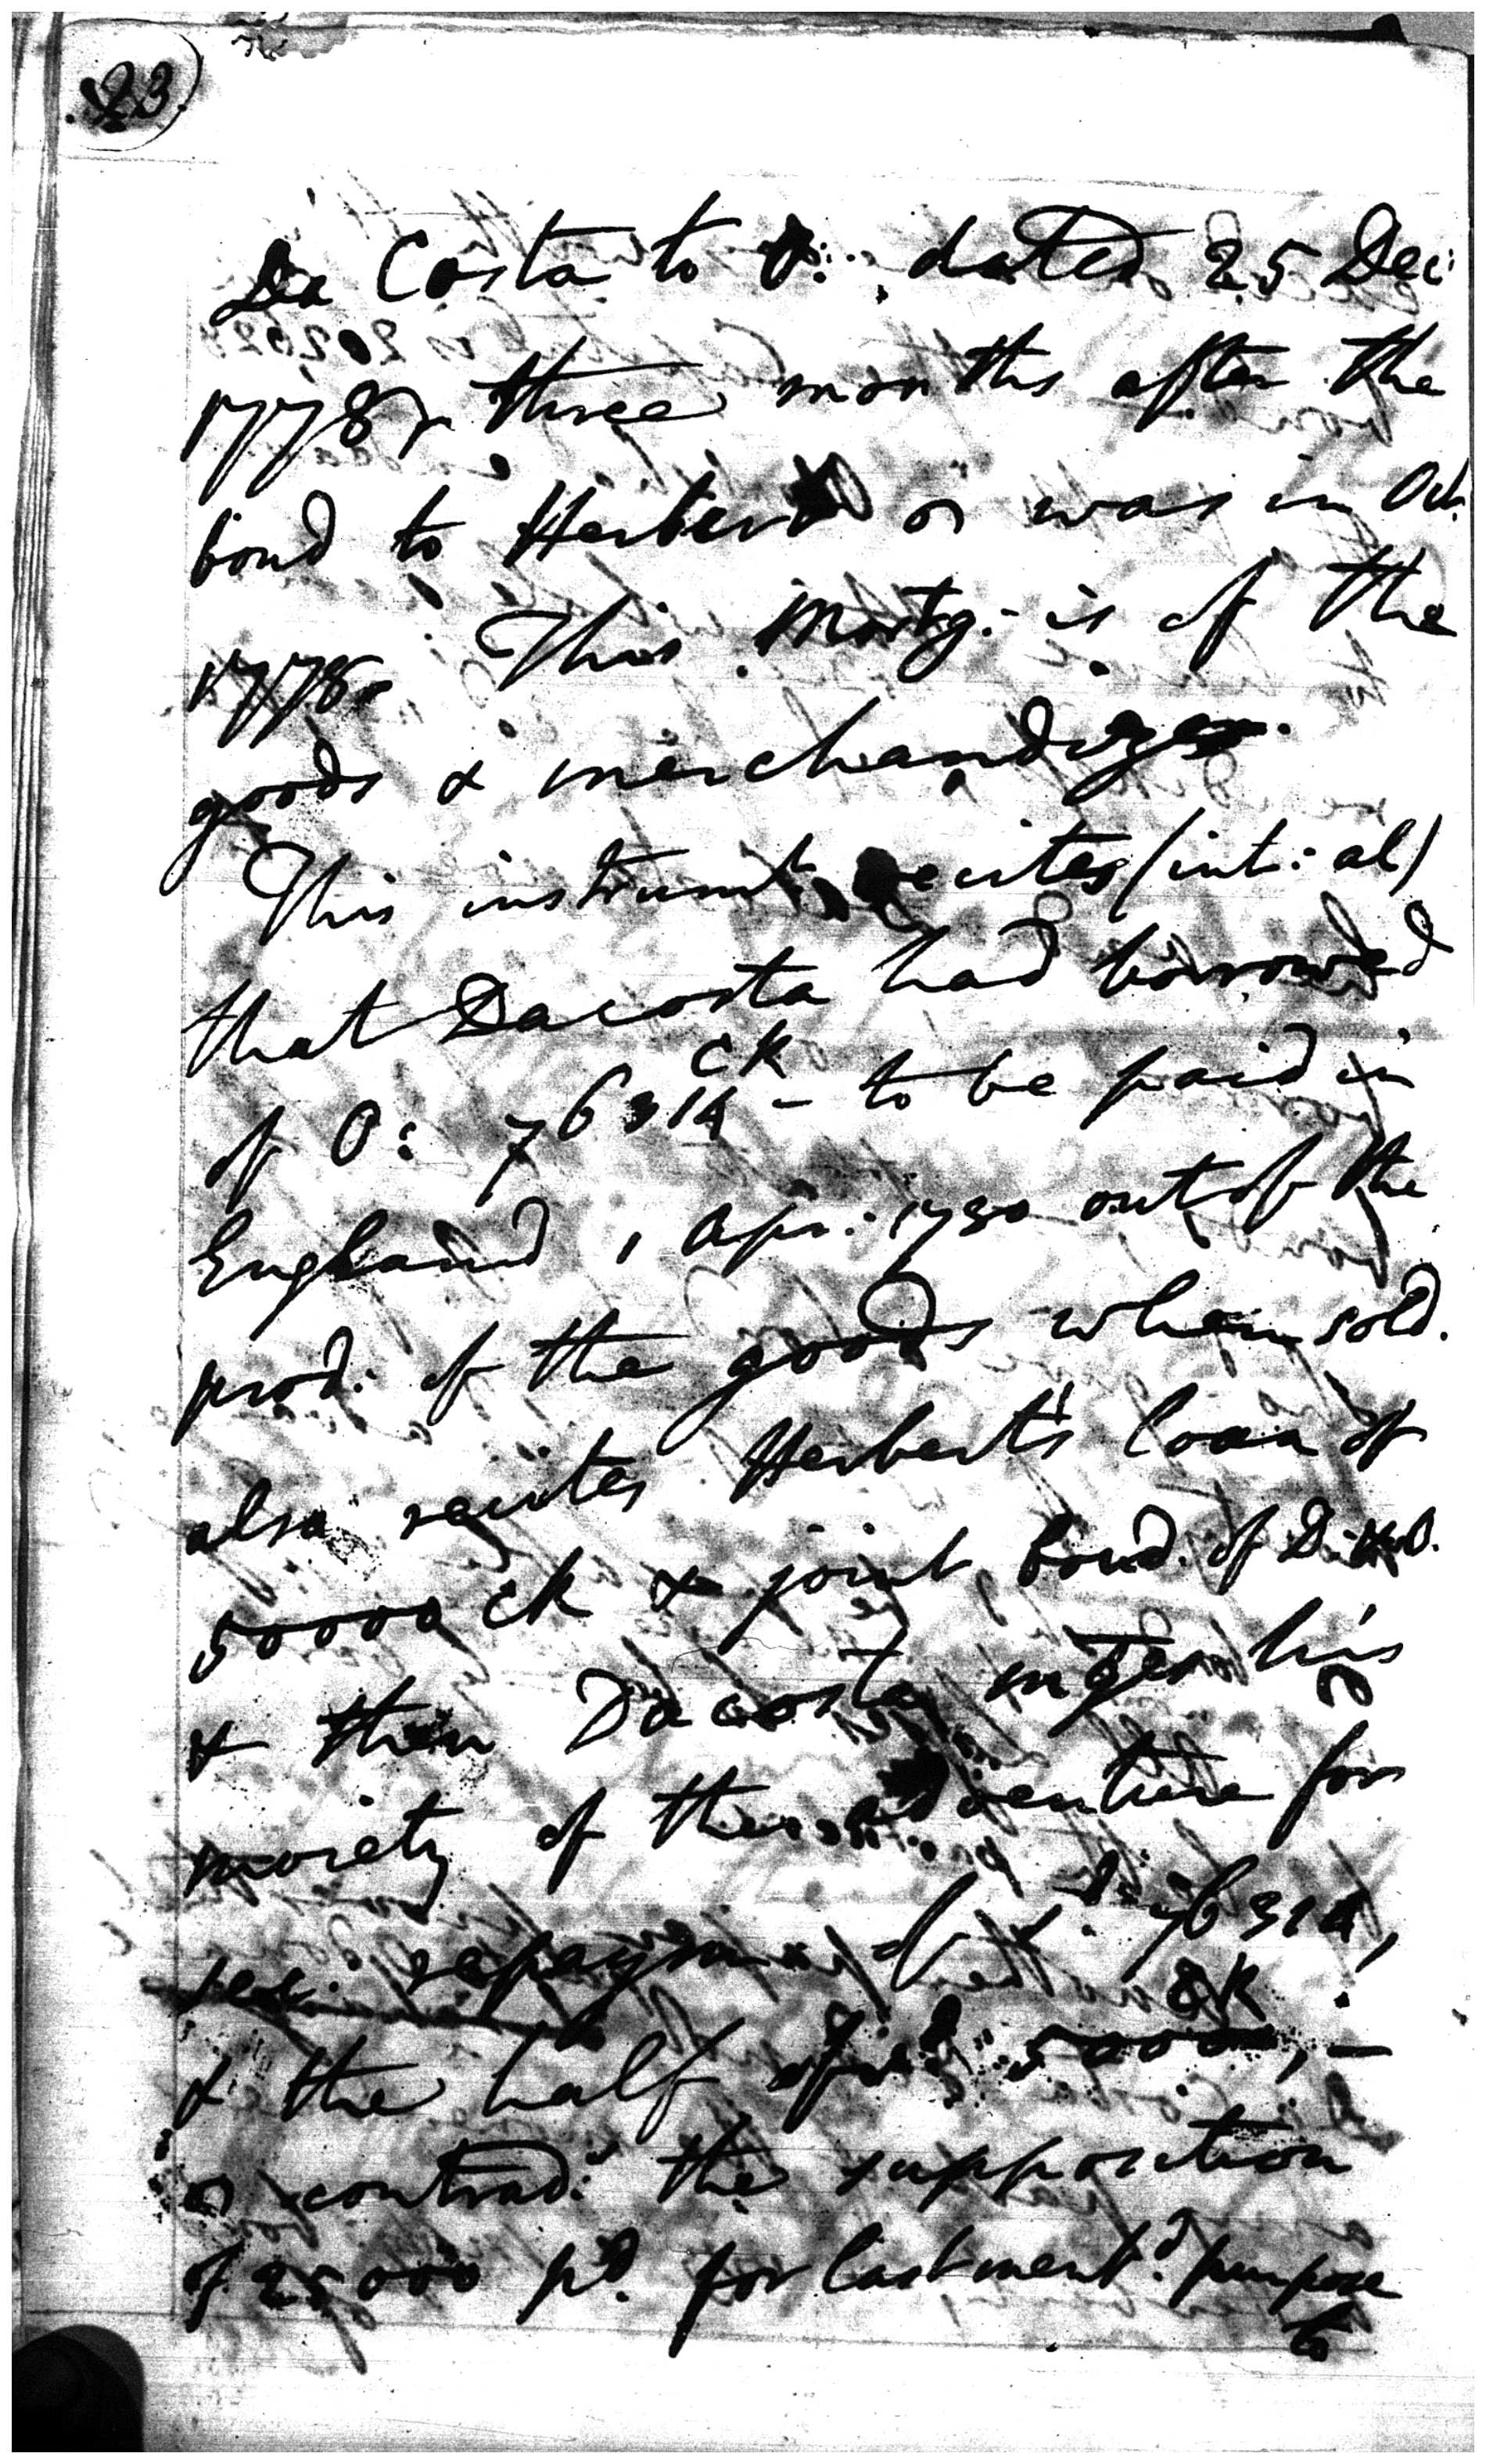 23
Da Costa to O: dated 25 Dec
1778, three months after the
bond to Herbert or was in Oct.
1778. This Mortg. is of the
goods & merchandizes.
This instrumt recites (int: al)
that Dacosta had borrowed
of O: 76314 CR - to be paid in
England 1 Apr: 1780 out of the
prod: of the goods when sold.
also recites Herbert's loan of
50000 CR & joint bond of D. & O.
& then Dacosta mtges his
moiety of the adventure for
repaym of 76314,
& the half of 50000 CR, —
contrad: the supposition
of 25000 pd. for last mentd. purpose
to